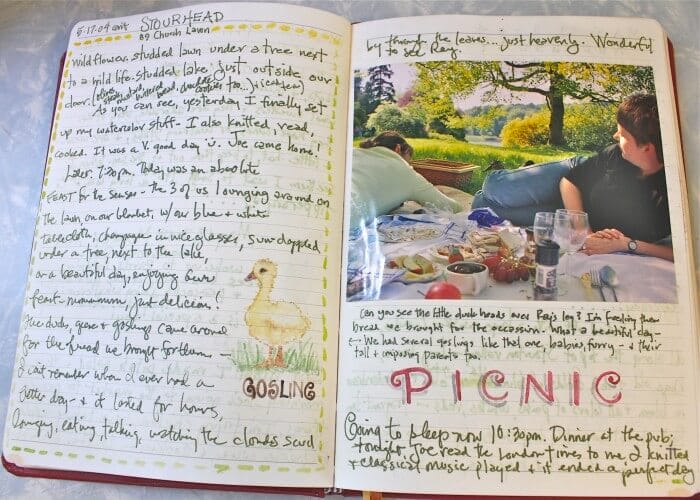 5.17.04 cont. STOURHEAD
89 Church Lawn
wildflower studded lawn under a tree next
to a wild life-studded lake, just outside our
door.
As you can see, yesterday I finally set
up my watercolor stuff. I also knitted, read,
cooked. It was a v. good day. Joe came home!
Later. 7:30pm. Today was an absolute
FEAST for the senses - the 3 of us lounging around on
the lawn, on our blanket, w/ our blue & white
tablecloth, champagne in nice glasses, sun dappled
under a tree, next to the lake,
on a beautiful day, enjoying our
feast - mmmmmm, just delicious!
The ducks, geese & goslings came around
for the bread we brought for them -
I can't remember when I ever had a
better day - & it lasted for hours,
lounging, eating, talking, watching the clouds scud
GOSLING
by through the leaves... just heavenly. Wonderful
to see Ray.
Can you see the little duck heads over Ray's leg? I'm feeding them
bread we brought for the occassion. What a beautiful day -
← We had several goslings like that one, babies, furry - & their
tall & imposing parents too.
PICNIC
Going to sleep now 10:30pm. Dinner at the pub,
tonight, Joe read the London Times to me I knitted
& classical music played & it ended a perfect day